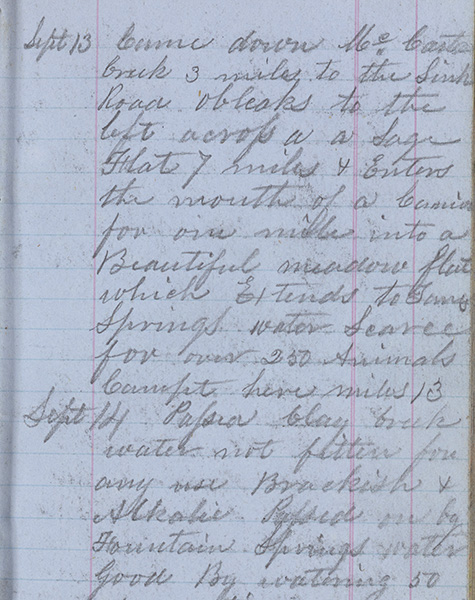 Sept 13 Came down Mc Carta
Creek 3 miles to the Sink
Road obleaks to the
left across a a Sage
Flat 7 miles & Enters
the mouth of a Canion
for one mile into a
Beautiful meadow flat
which Extends to
Springs water Scarce
for over 250 Animals
Campt here miles 13
Sept 14 Passed Clay Creek
water not fitten for
any use Brackish &
Alkalie Passed on by
Fountain Springs water
Good By watering 50